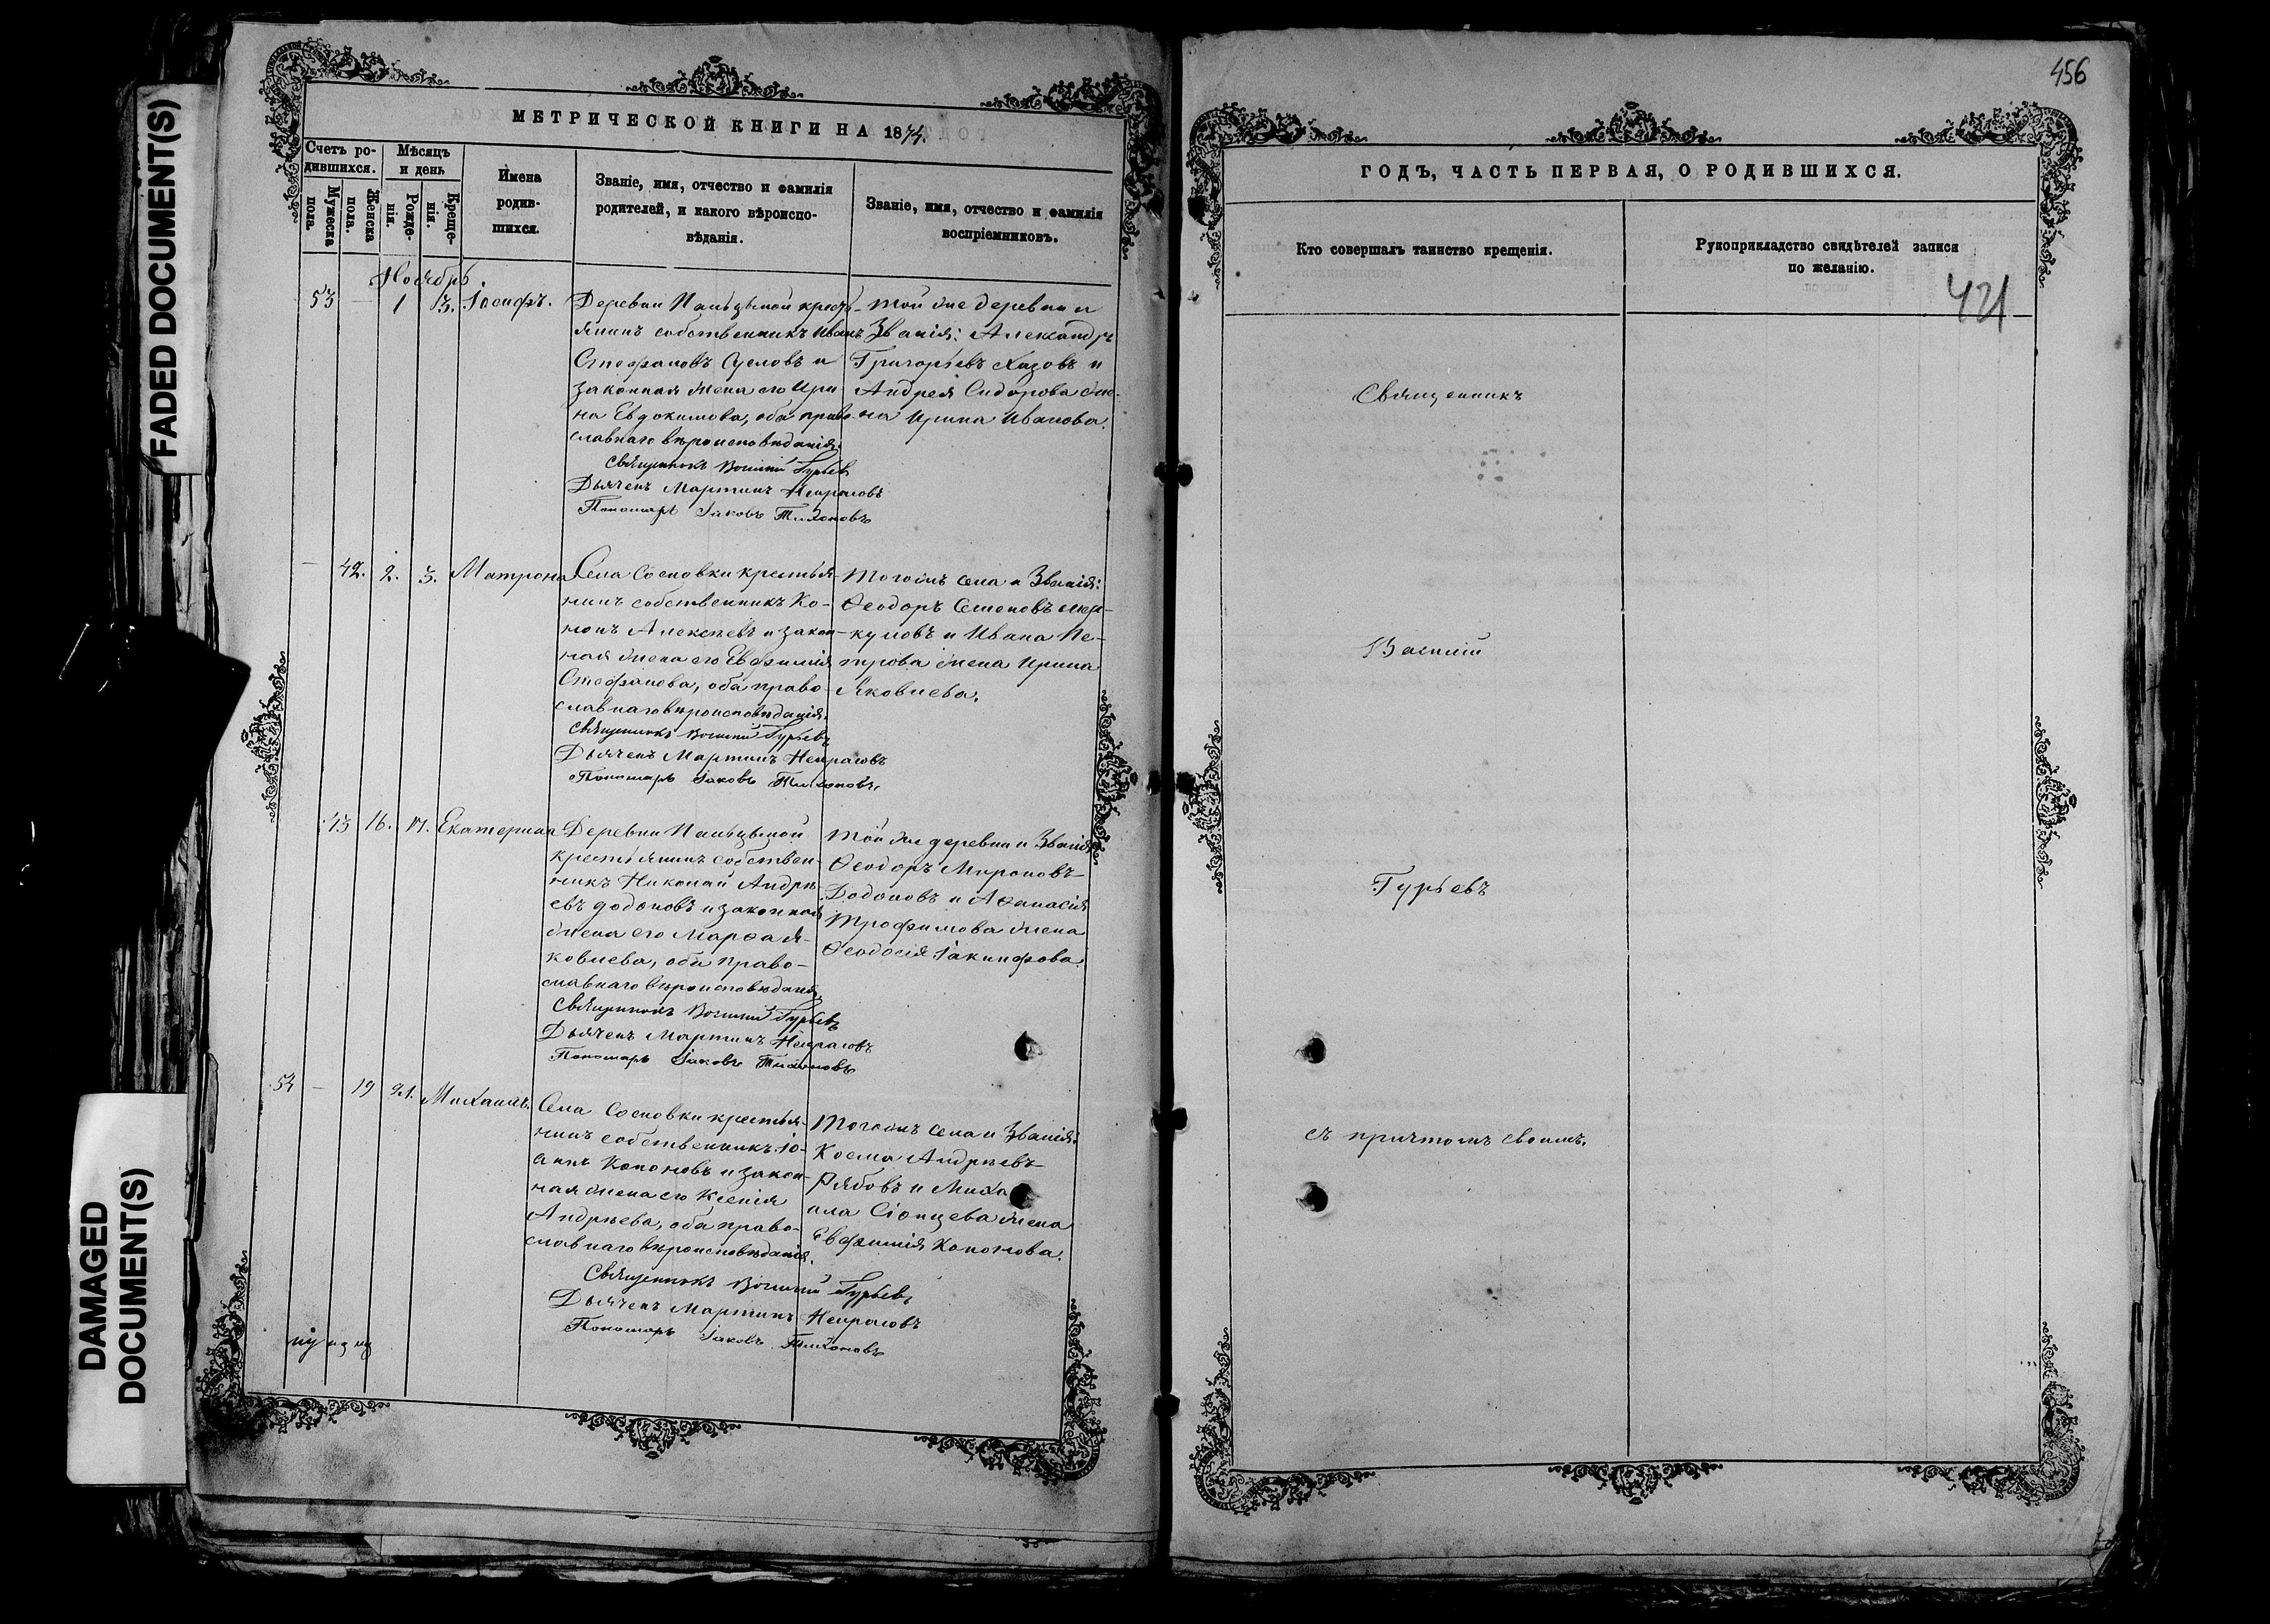 FADED DOCUMENT(S)
DAMAGED
DOCUMENT(S)
МЕТРИЧЕСКОЙ КНИГИ НА 1874.
Счетъ ро-
дившихся.
Мужеска
пола.
Женска
пола.
Мѣсяцъ
и день
Рожде-
нія.
Креще-
нія.
Имена
родив-
шихся.
Званіе, имя, отчество и фамилія
родителей, и какого вѣроиспо-
вѣданія.
Званіе, имя, отчество и фамилія
воспріемниковъ.
Ноябрь
53 — 1 3. Іосифъ.
Деревни Пальцыной кресть-
янинъ собственникъ Иванъ
Стефановъ Сусловъ и
законная жена его Ири-
на Евдокимова, оба право-
славнаго вѣроисповѣданія.
Священникъ Василій Гурьевъ
Дьячекъ Мартинъ Некрасовъ
Пономарь Іаковъ Тихоновъ
Той же деревни и
Званія: Александръ
Григорьевъ Хазовъ и
Андрея Сидорова же-
на Ирина Иванова.
— 42. 2. 3. Матрона
Села Сосновки крестья-
нинъ собственникъ Ко-
нонъ Алексѣевъ и закон-
ная жена его Евфимія
Стефанова, оба право-
славнаго вѣроисповѣданія.
Священникъ Василій Гурьевъ
Дьячекъ Мартинъ Некрасовъ
Пономарь Іаковъ Тихоновъ.
Тогожъ села и Званія:
Ѳеодоръ Семеновъ
и Ивана Пе-
трова жена Ирина
Яковлева.
43 16. 17. Екатерина
Деревни Пальцыной
крестьянинъ собствен-
никъ Николай Андрѣ-
евъ Додоновъ и законная
жена его Марѳа Я-
ковлева, оба право-
славнаго вѣроисповѣданія.
Священникъ Василій Гурьевъ
Дьячекъ Мартинъ Некрасовъ
Пономарь Іаковъ Тихоновъ
Той же деревни и Званія
Ѳеодоръ Мироновъ
Додоновъ и Аѳанасія
Трофимова жена
Ѳеодосія Іакинфова.
54 — 19 21. Михаилъ.
Села Сосновки крестья-
нинъ собственникъ Іо-
аннъ Кононовъ и закон-
ная жена его Ксенія
Андрѣева, оба право-
славнаго вѣроисповѣданія.
Священникъ Василій Гурьевъ
Дьячекъ Мартинъ Некрасовъ
Пономарь Іаковъ Тихоновъ
Тогожъ села и Званія:
Косма Андрѣевъ
Рябовъ и Миха
ила жена
Евфимія Кононова.
456
ГОДЪ, ЧАСТЬ ПЕРВАЯ, О РОДИВШИХСЯ.
Кто совершалъ таинство крещенія.
Рукоприкладство свидѣтелей записи
по желанію.
421
Священникъ
Василій
Гурьевъ
съ причтомъ своимъ.